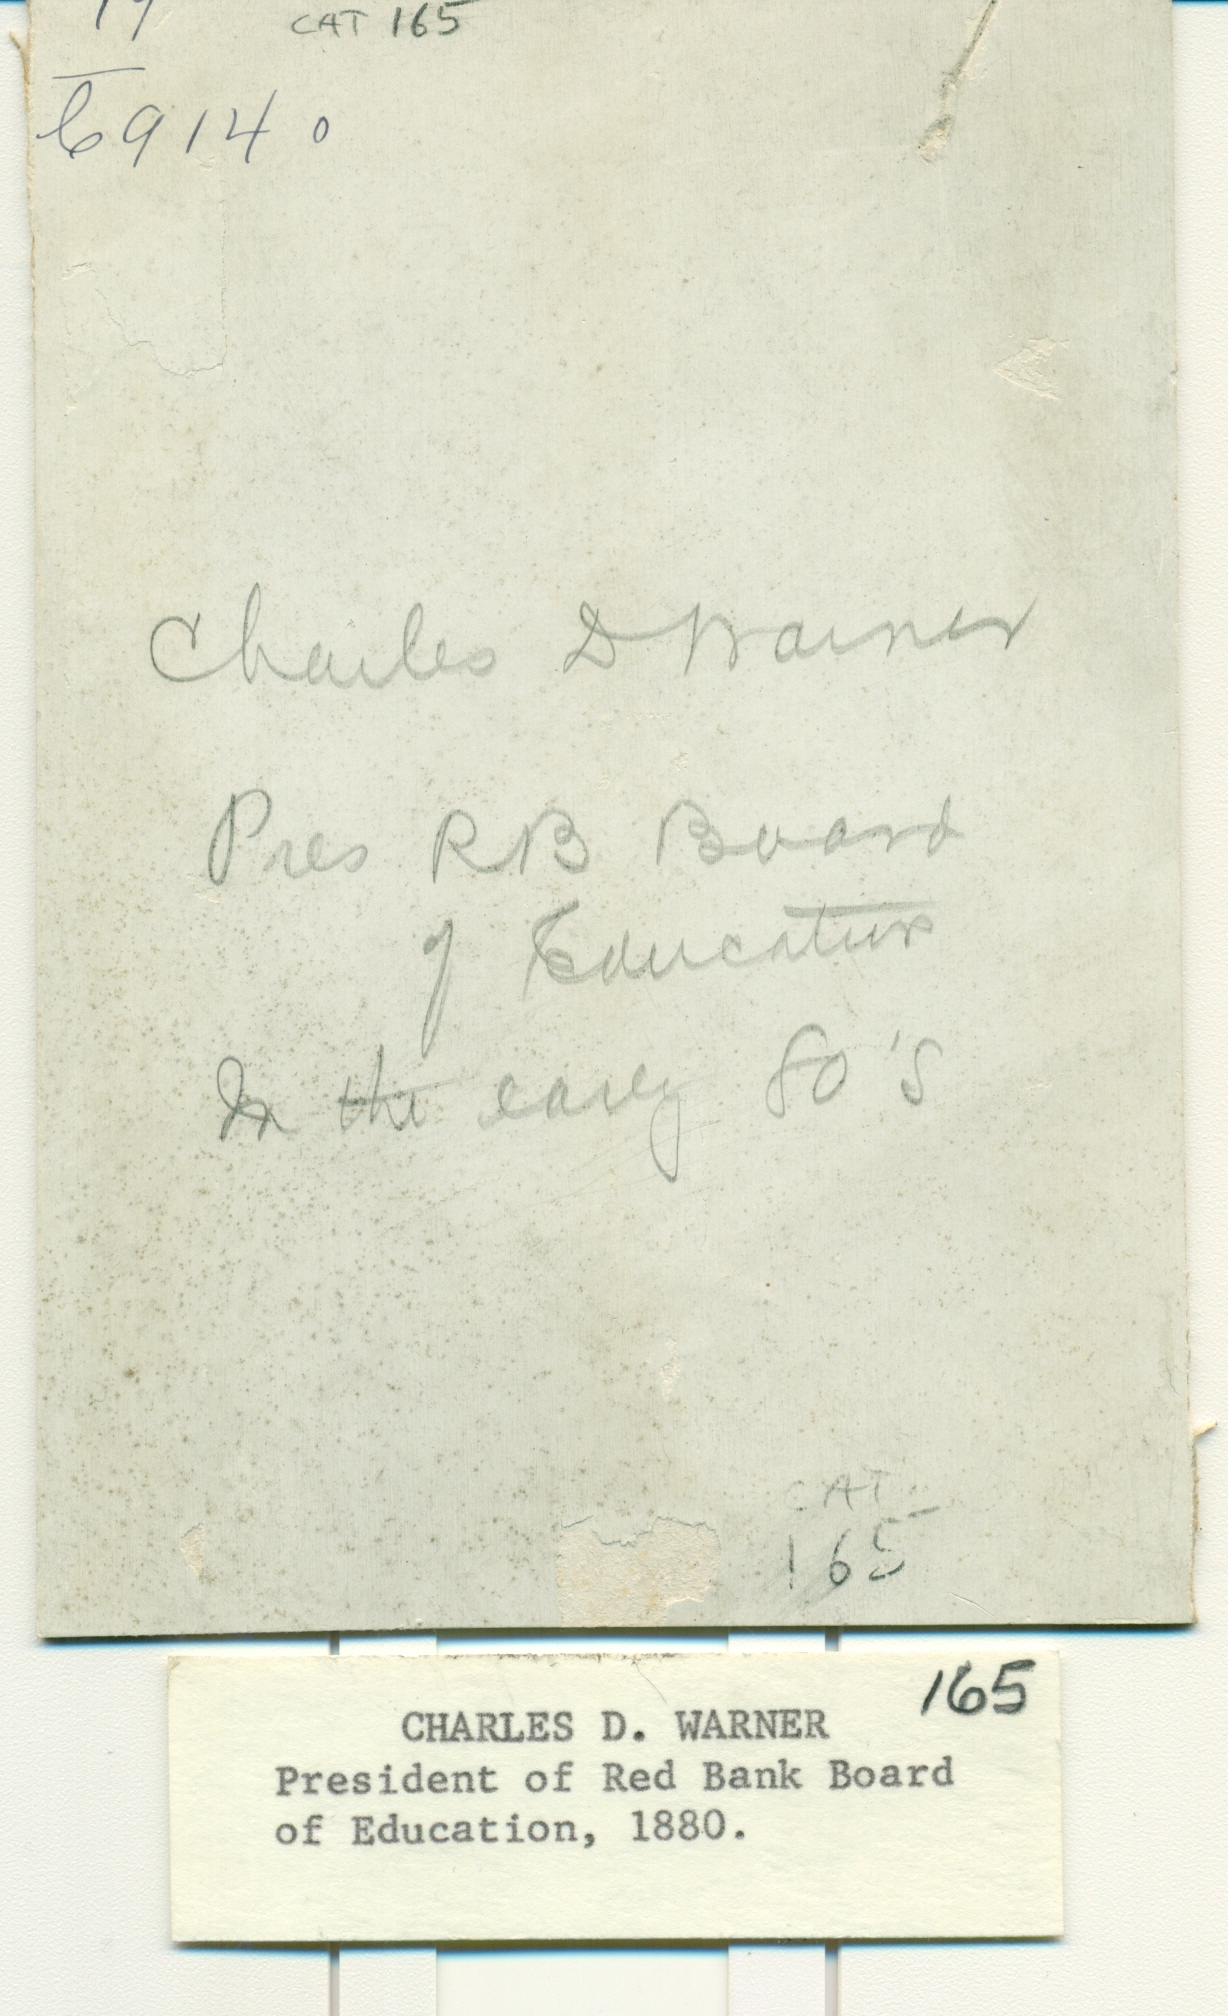 CAT 165
69140
Charles D Warner
Pres RB Board
of Education
In the early 80's
CAT
165
165
CHARLES D. WARNER
President of Red Bank Board
of Education, 1880.